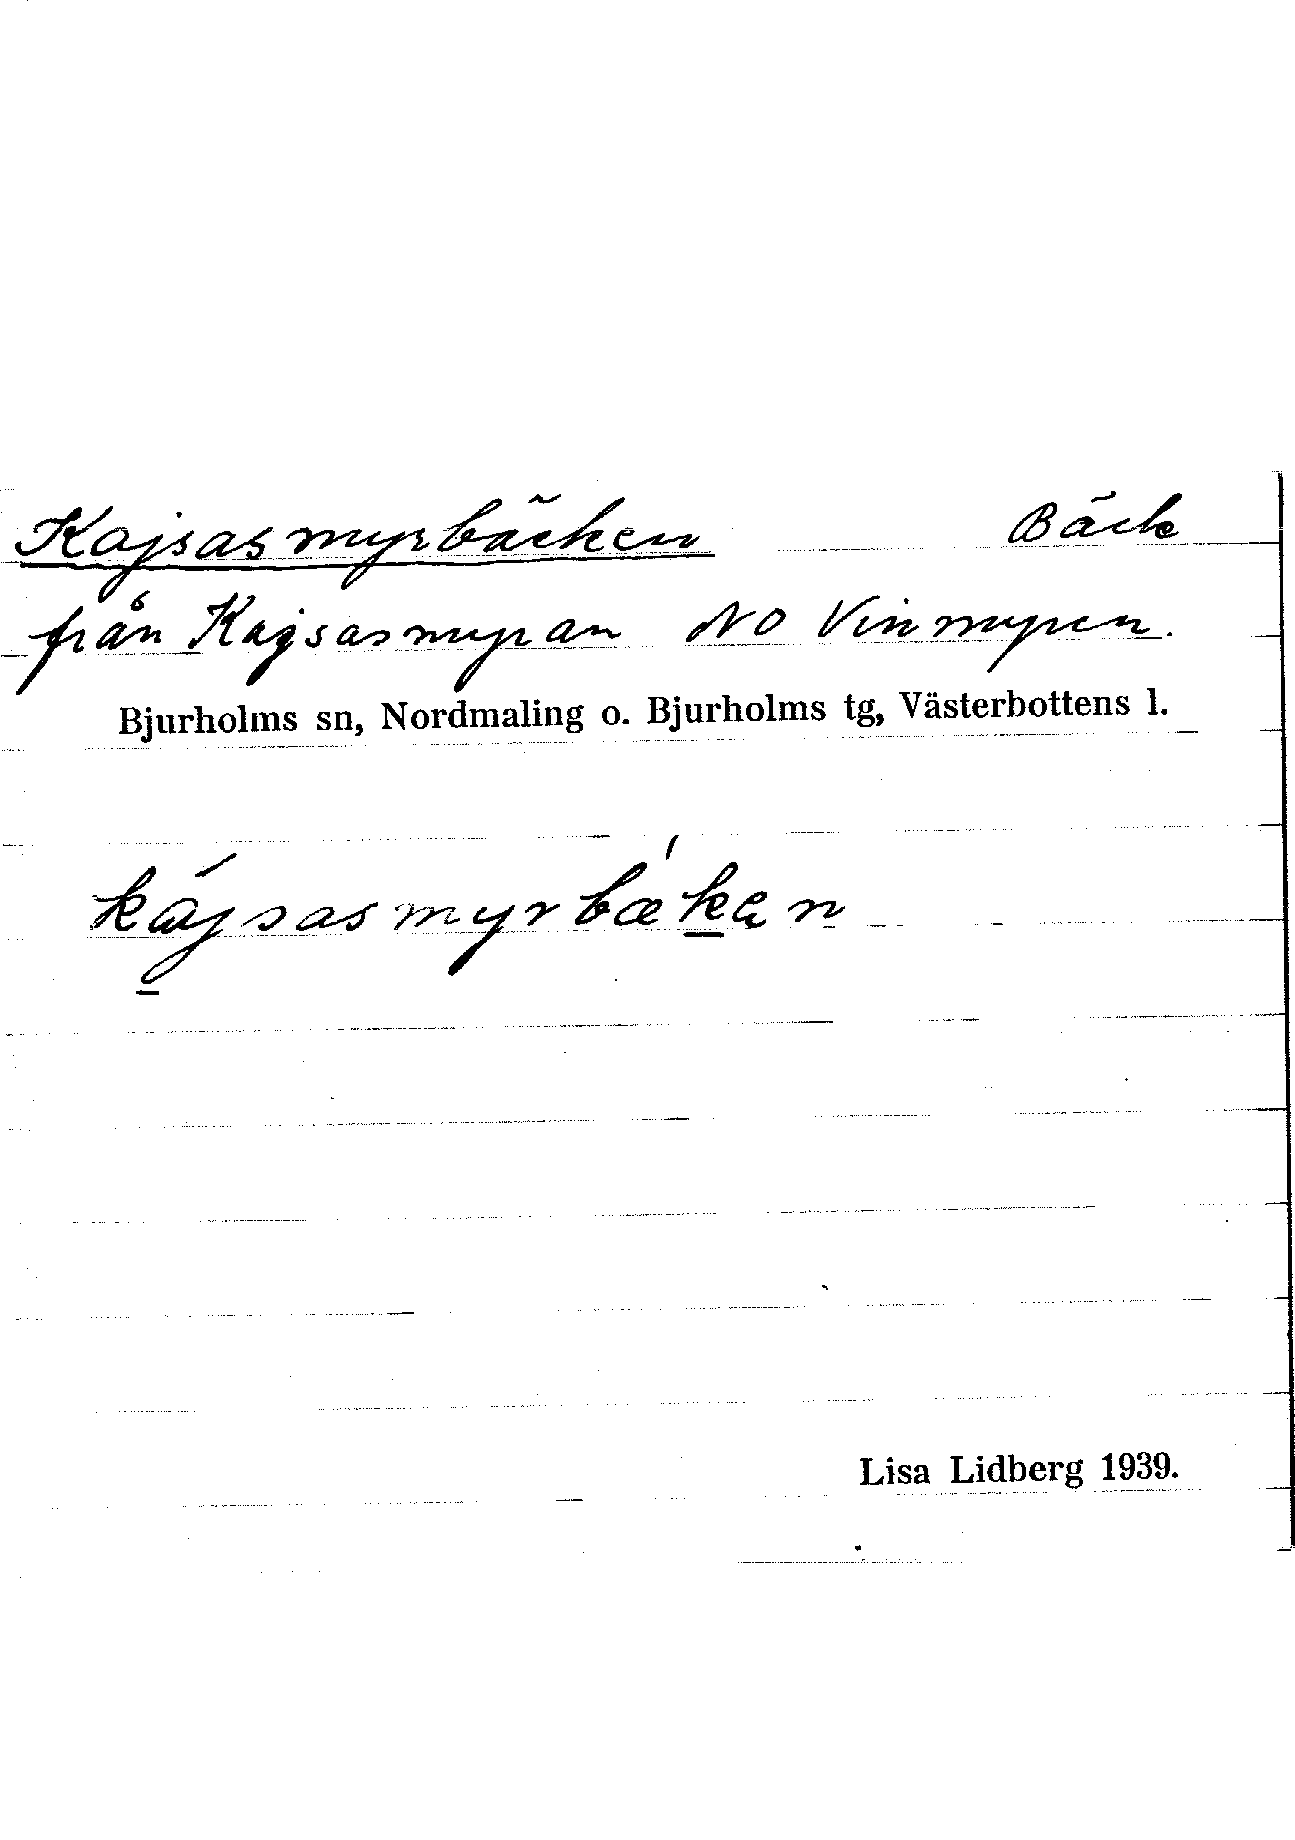 Kajsasmyrbäcken Bäck
från Kajsasmyran NO Vinmyren.
Bjurholms sn, Nordmaling o. Bjurholms tg, Västerbottens l.
kájsasmyrbæ̀kan
Lisa Lidberg 1939.